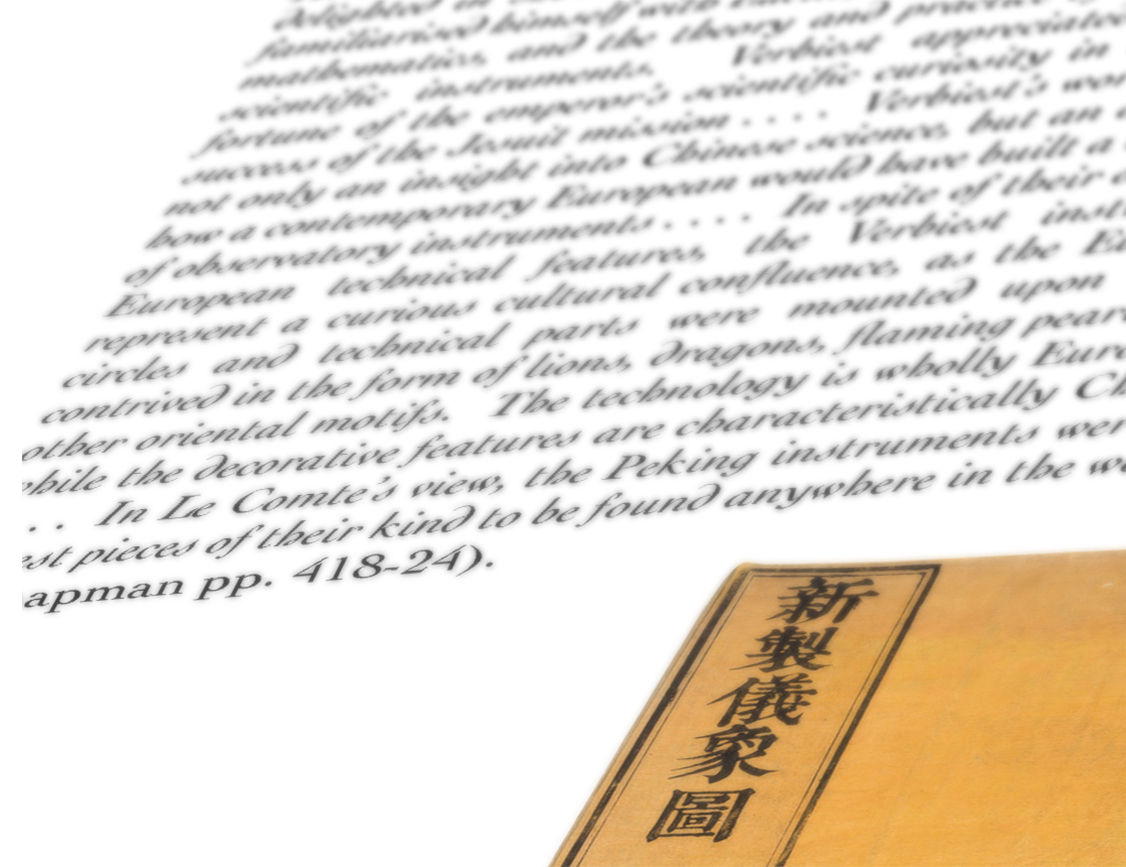 delighted in
familiarised himself with
mathematics, and the theory and practice
scientific instruments. Verbiest appreciated
fortune of the emperor's scientific curiosity in
success of the Jesuit mission . . . . Verbiest's
not only an insight into Chinese science, but an
how a contemporary European would have built a
of observatory instruments . . . . In spite of their
European technical features, the Verbiest
represent a curious cultural confluence, as the
circles and technical parts were mounted upon
contrived in the form of lions, dragons, flaming
other oriental motifs. The technology is wholly
while the decorative features are characteristically
. . In Le Comte's view, the Peking instruments
pieces of their kind to be found anywhere in the
apman pp. 418-24).
新製儀象圖